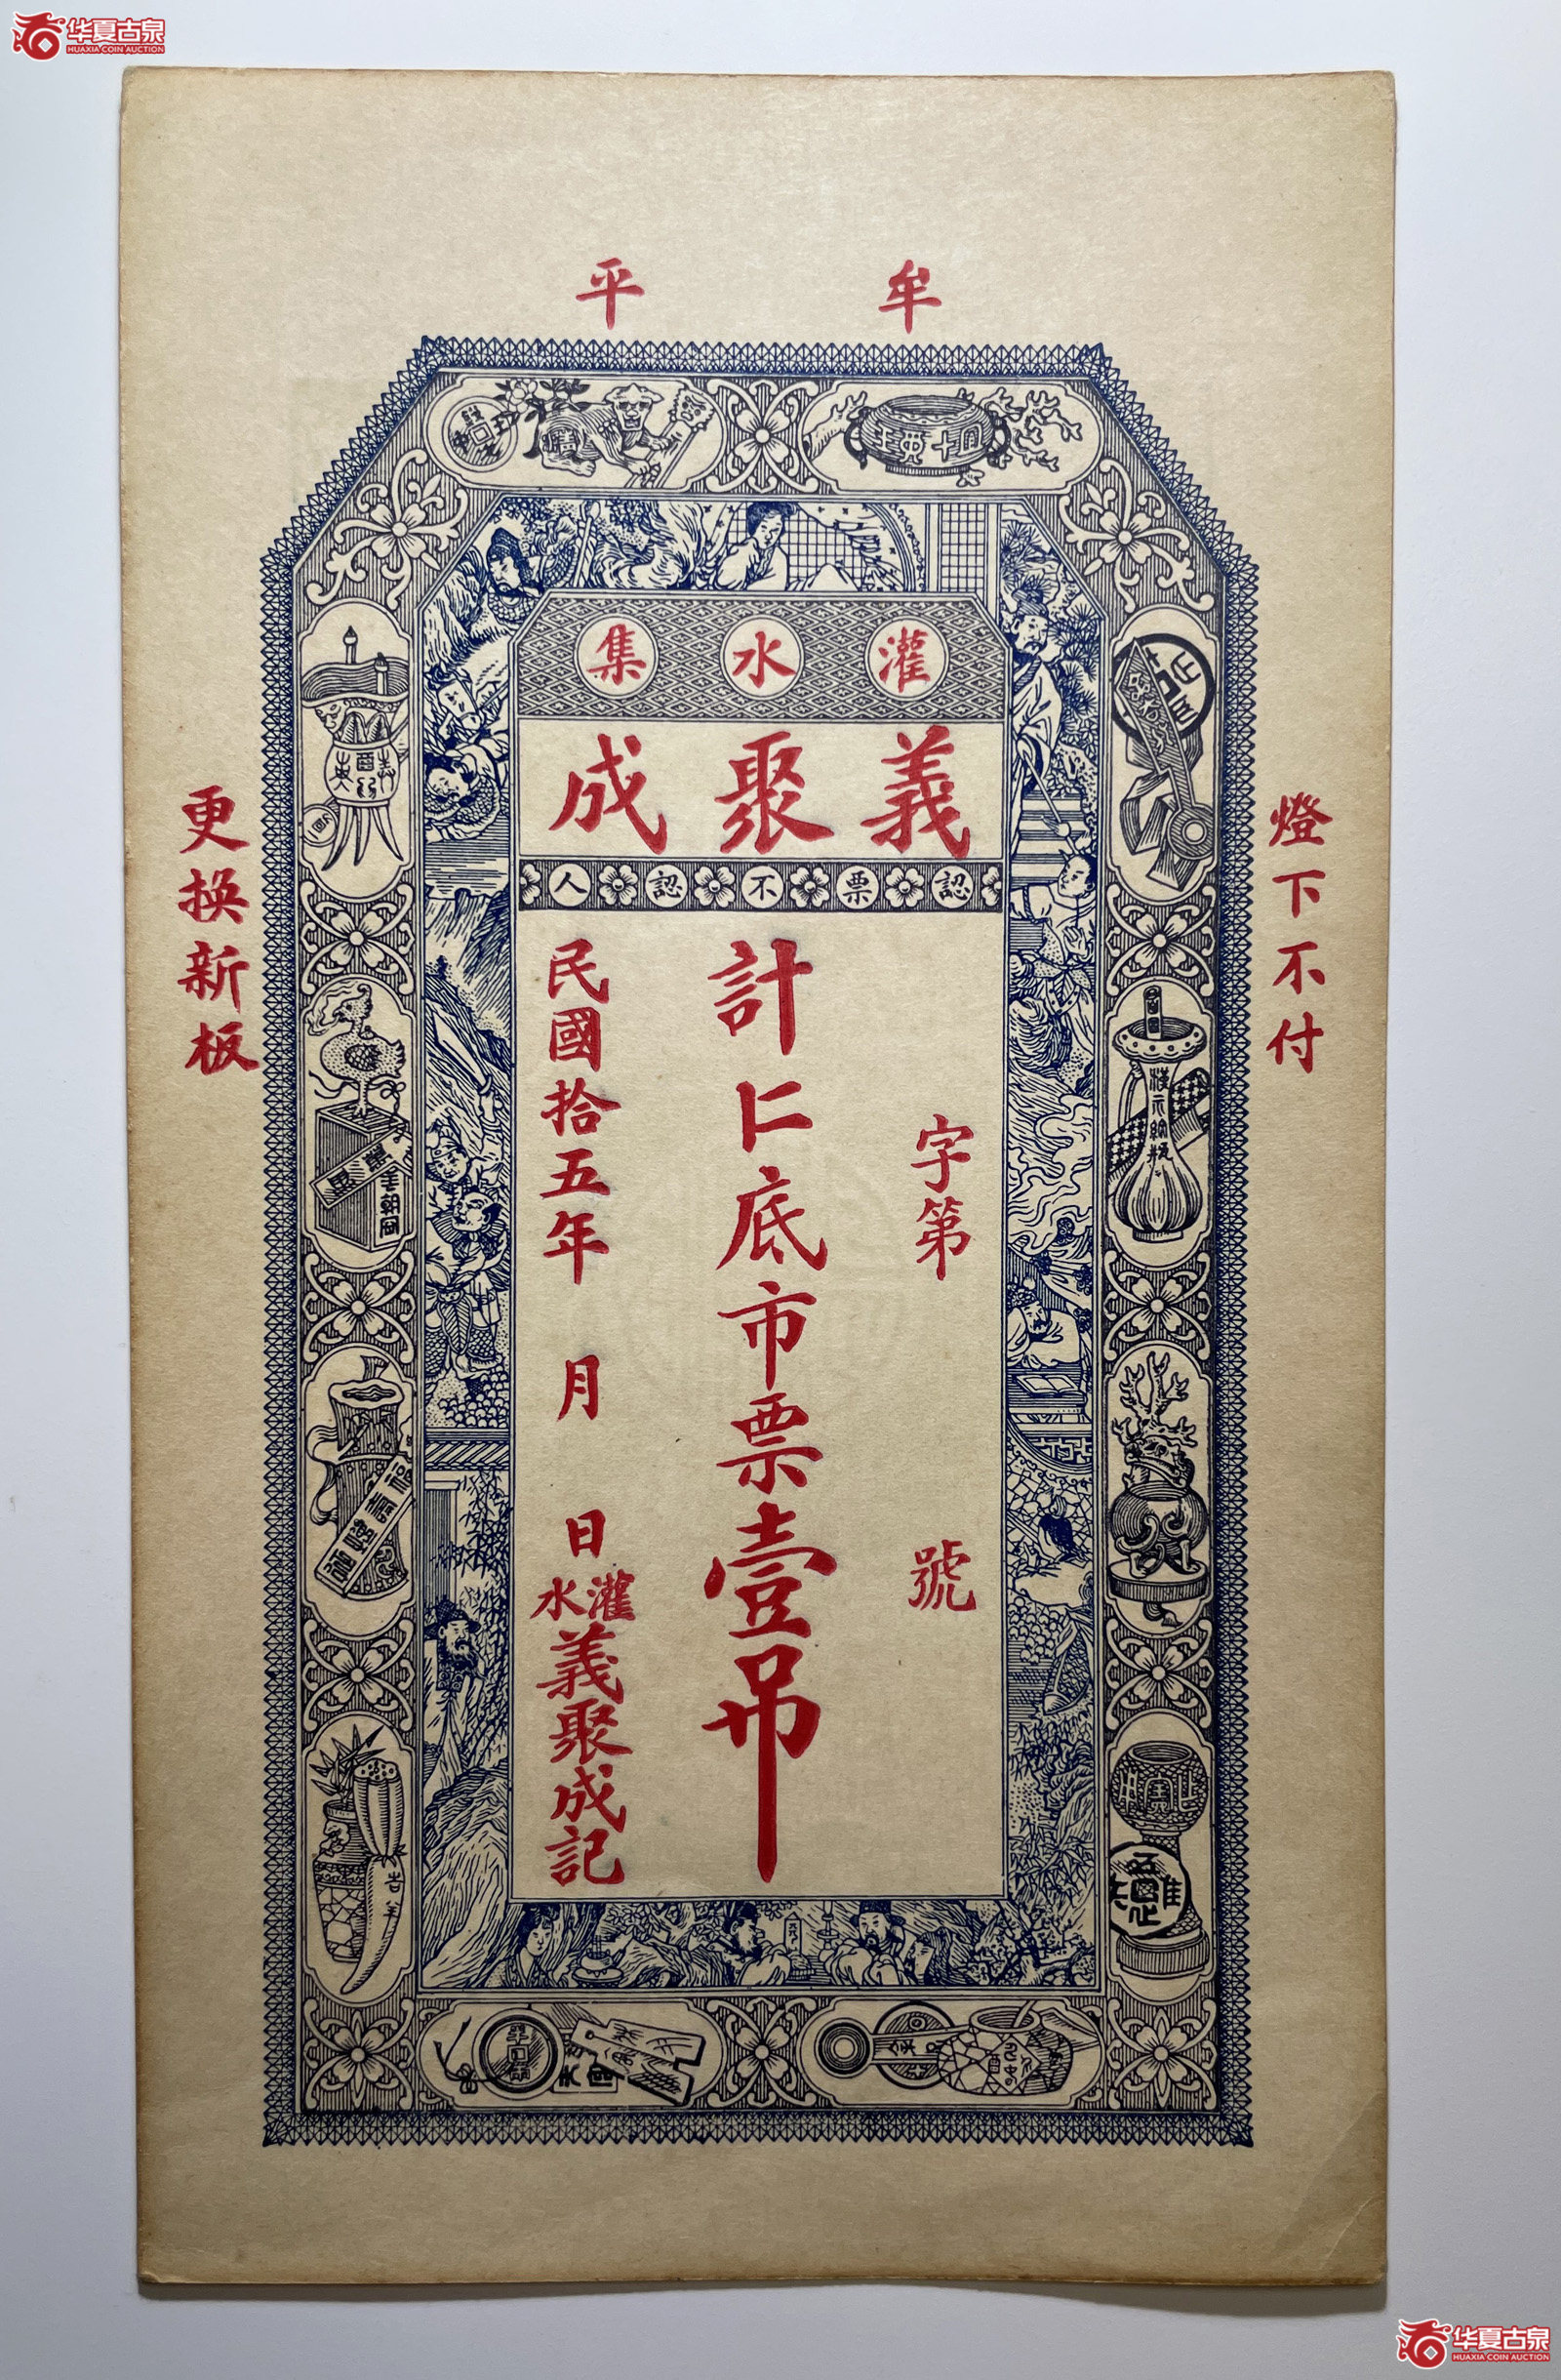 华夏古泉
HUAXIA COIN AUCTION
牟平
灌水集
義聚成
認票不認人
燈下不付
字第號
計仁底市票壹吊
民國拾五年月日
灌水
義聚成記
更換新板
半兩
华夏古泉
HUAXIA COIN AUCTION